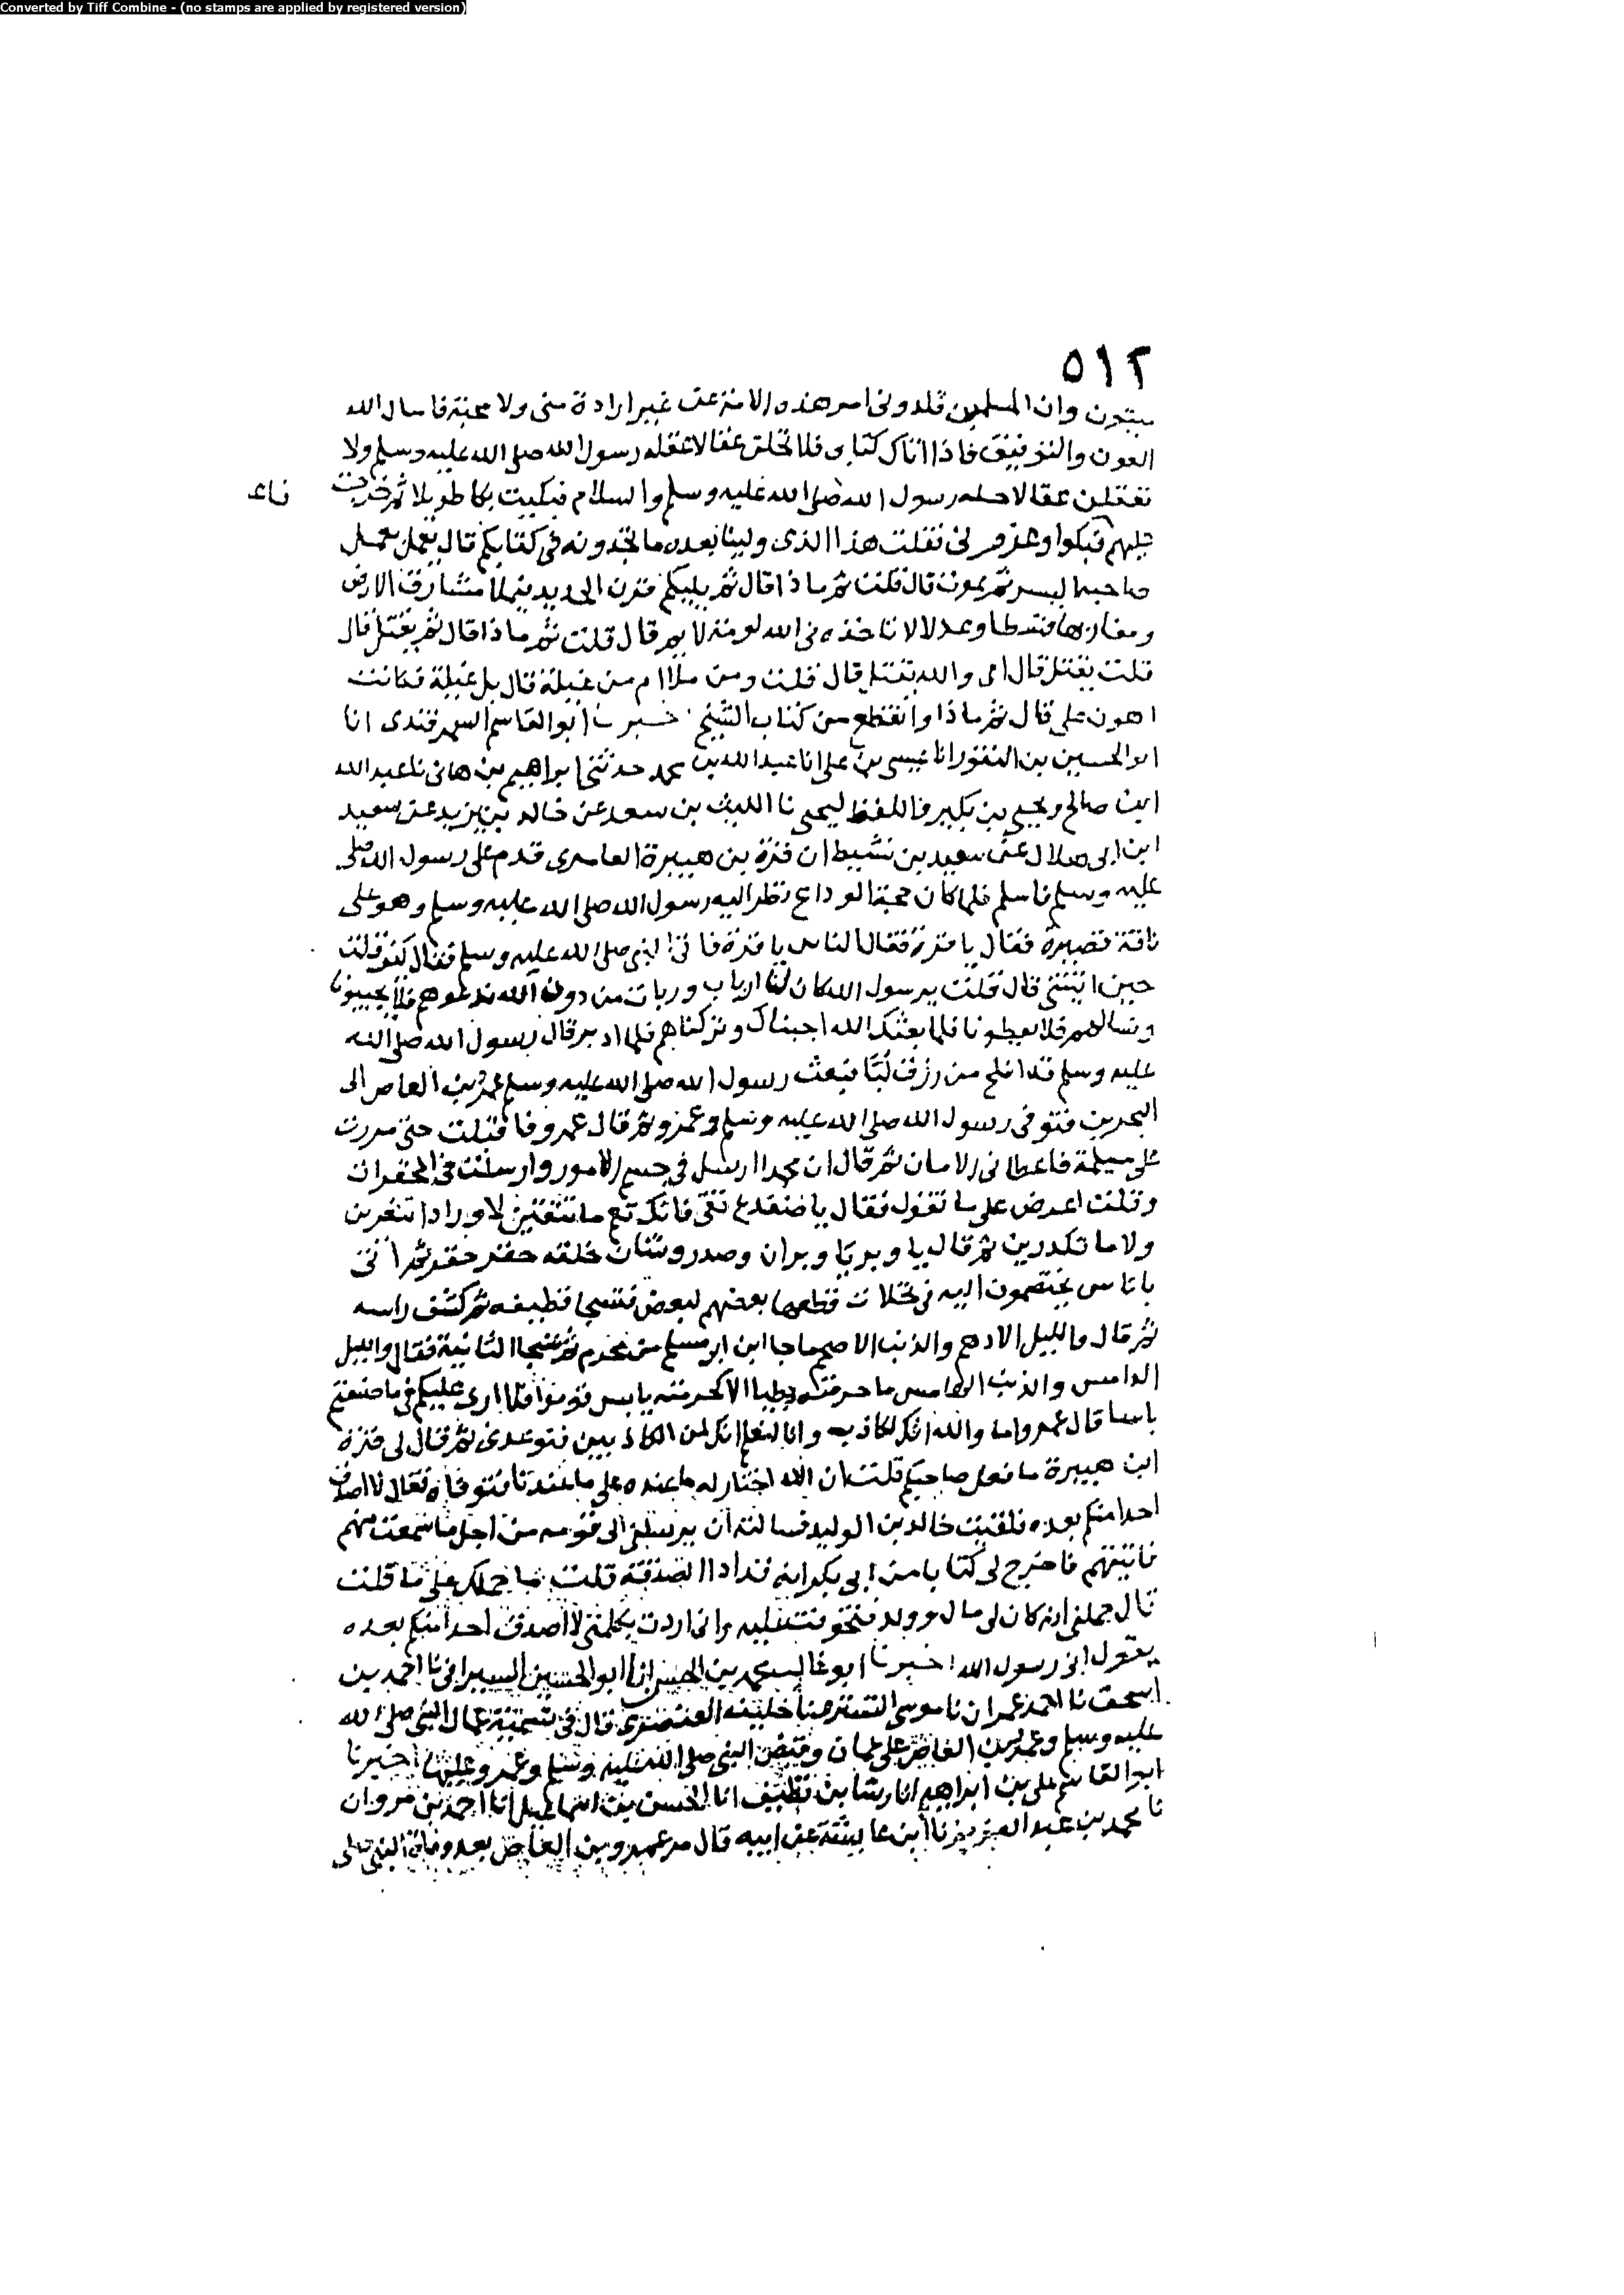 Converted by Tiff Combine - (no stamps are applied by registered version)
٥١٢
ميتون وان المسلمين قلدونى امر هذه الامة عن غير ارادة منى ولا محبة فاسال الله
العون والتوفيق فاذا اتاك كتابى فلا تحلن عقالا عقله رسول الله صلى الله عليه وسلم ولا
تعقلن عقالا حله رسول الله صلى الله عليه وسلم والسلام فبكيت بكا طويلا ثم خرجت
فاعـ
عليهم فبكوا وعزونى فقلت هذا الذى ولينا بعده ما تجدونه فى كتابكم قال يعمل بعمل
صاحبه اليسير ثم يموت قال قلت ثم ماذا قال ثم يليكم قرن الحديد فيملا مشارق الارض
ومغاربها قسطا وعدلا لا تاخذه فى الله لومة لايم قال قلت ثم ماذا قال ثم يقتل قال
قلت يقتل قال اى والله يقتل قال قلت ومن ملا ام من غيلة قال بل غيلة فكانت
اهون على قال ثم ماذا وانقطع من كتاب الشيخ اخبرنا ابو القاسم السمرقندى انا
ابو الحسين بن النقور انا عيسى بن على انا عبد الله بن محمد حدثنى ابراهيم بن هانى نا عبد الله
ابن صالح ويحيى بن بكير واللفظ ليحيى نا الليث بن سعد عن خالد بن يزيد عن سعيد
ابن ابى هلال عن سعيد بن نشيط ان قرة بن هبيرة العامرى قدم على رسول الله صلى
عليه وسلم فاسلم فلما كان حجة الوداع نظر اليه رسول الله صلى الله عليه وسلم وهو على
ناقة قصيرة فقال يا قرة فقال الناس يا قرة فاتى النبى صلى الله عليه وسلم فقال كيف قلت
حين اتيتنى قال قلت يرسول الله كان لنا ارباب وربات من دون الله ندعوهم فلا يجيبونا
ونسالهم فلا يعطونا فلما بعثك الله اجبناك وتركناهم فلما ادبر قال رسول الله صلى الله
عليه وسلم قد افلح من رزق لبا فبعث رسول الله صلى الله عليه وسلم عمرو بن العاص الى
البحرين فتوفى رسول الله صلى الله عليه وسلم وعمرو ثم قال عمرو فاقبلت حتى مررت
على مسيلمة فاعطانى الامان ثم قال ان محمدا ارسل فى جسيم الامور وارسلت فى المحقرات
وقلت اعرض على ما تقول فقال يا ضفدع نقى فانك نعم ما تنقين لا وراد اتنفرين
ولا ما تكدرين ثم قال يا وبر يا وبران وصدر وشان خلقه حفر حقر ثم اتى
باناس يختصمون اليه فى نخلات قطعها بعضهم لبعض فتسجا قطيفه ثم كشف راسه
ثم قال والليل الادهم والذئب الاصحم ما جا ابن ابو مسلم من محرم ثم تسجا الثانية فقال والليل
الدامس والذئب الهامس ما حرمته رطبا الا كحرمته يابس قوموا فلا ارى عليكم فيما صنعتم
باسا قال عمرو اما والله انك لكاذب وانا لنعلم انك لمن الكاذبين فتوعدنى ثم قال لى قرة
ابن هبيرة ما فعل صاحبكم قلت ان الله اختار له ما عنده على ما عندنا فتوفاه فقال لا اصدق
احدا منكم بعده فلقيت خالد بن الوليد فسالته ان يرسلنى الى قومه من اجل ما سمعت منهم
فاتيتهم فاخرج لى كتابا من ابى بكر انه قد ادا الصدقة قلت ما حملك على ما قلت
قال حملنى انه كان لى مال وولد فتخوفت عليه وانى اردت بكلمتى لا اصدق احدا منكم بعده
يقول انى رسول الله اخبرنا ابو غالب محمد بن الحسن انا ابو الحسين السيرافى نا احمد بن
اسحق نا احمد عمران نا موسى التسترى نا خليفه العصفرى قال فى تسمية عمال النبى صلى الله
عليه وسلم وعمرو بن العاص على عمان وقبض النبى صلى الله عليه وسلم وعمرو عليها اخبرنا
ابو القاسم على بن ابراهيم انا رشا بن نظيف انا الحسن بن اسماعيل انا احمد بن مروان
نا محمد بن عبد العزيز نا ابن عايشة عن ابيه قال مر عمرو بن العاص بعد وفاة النبى صلى